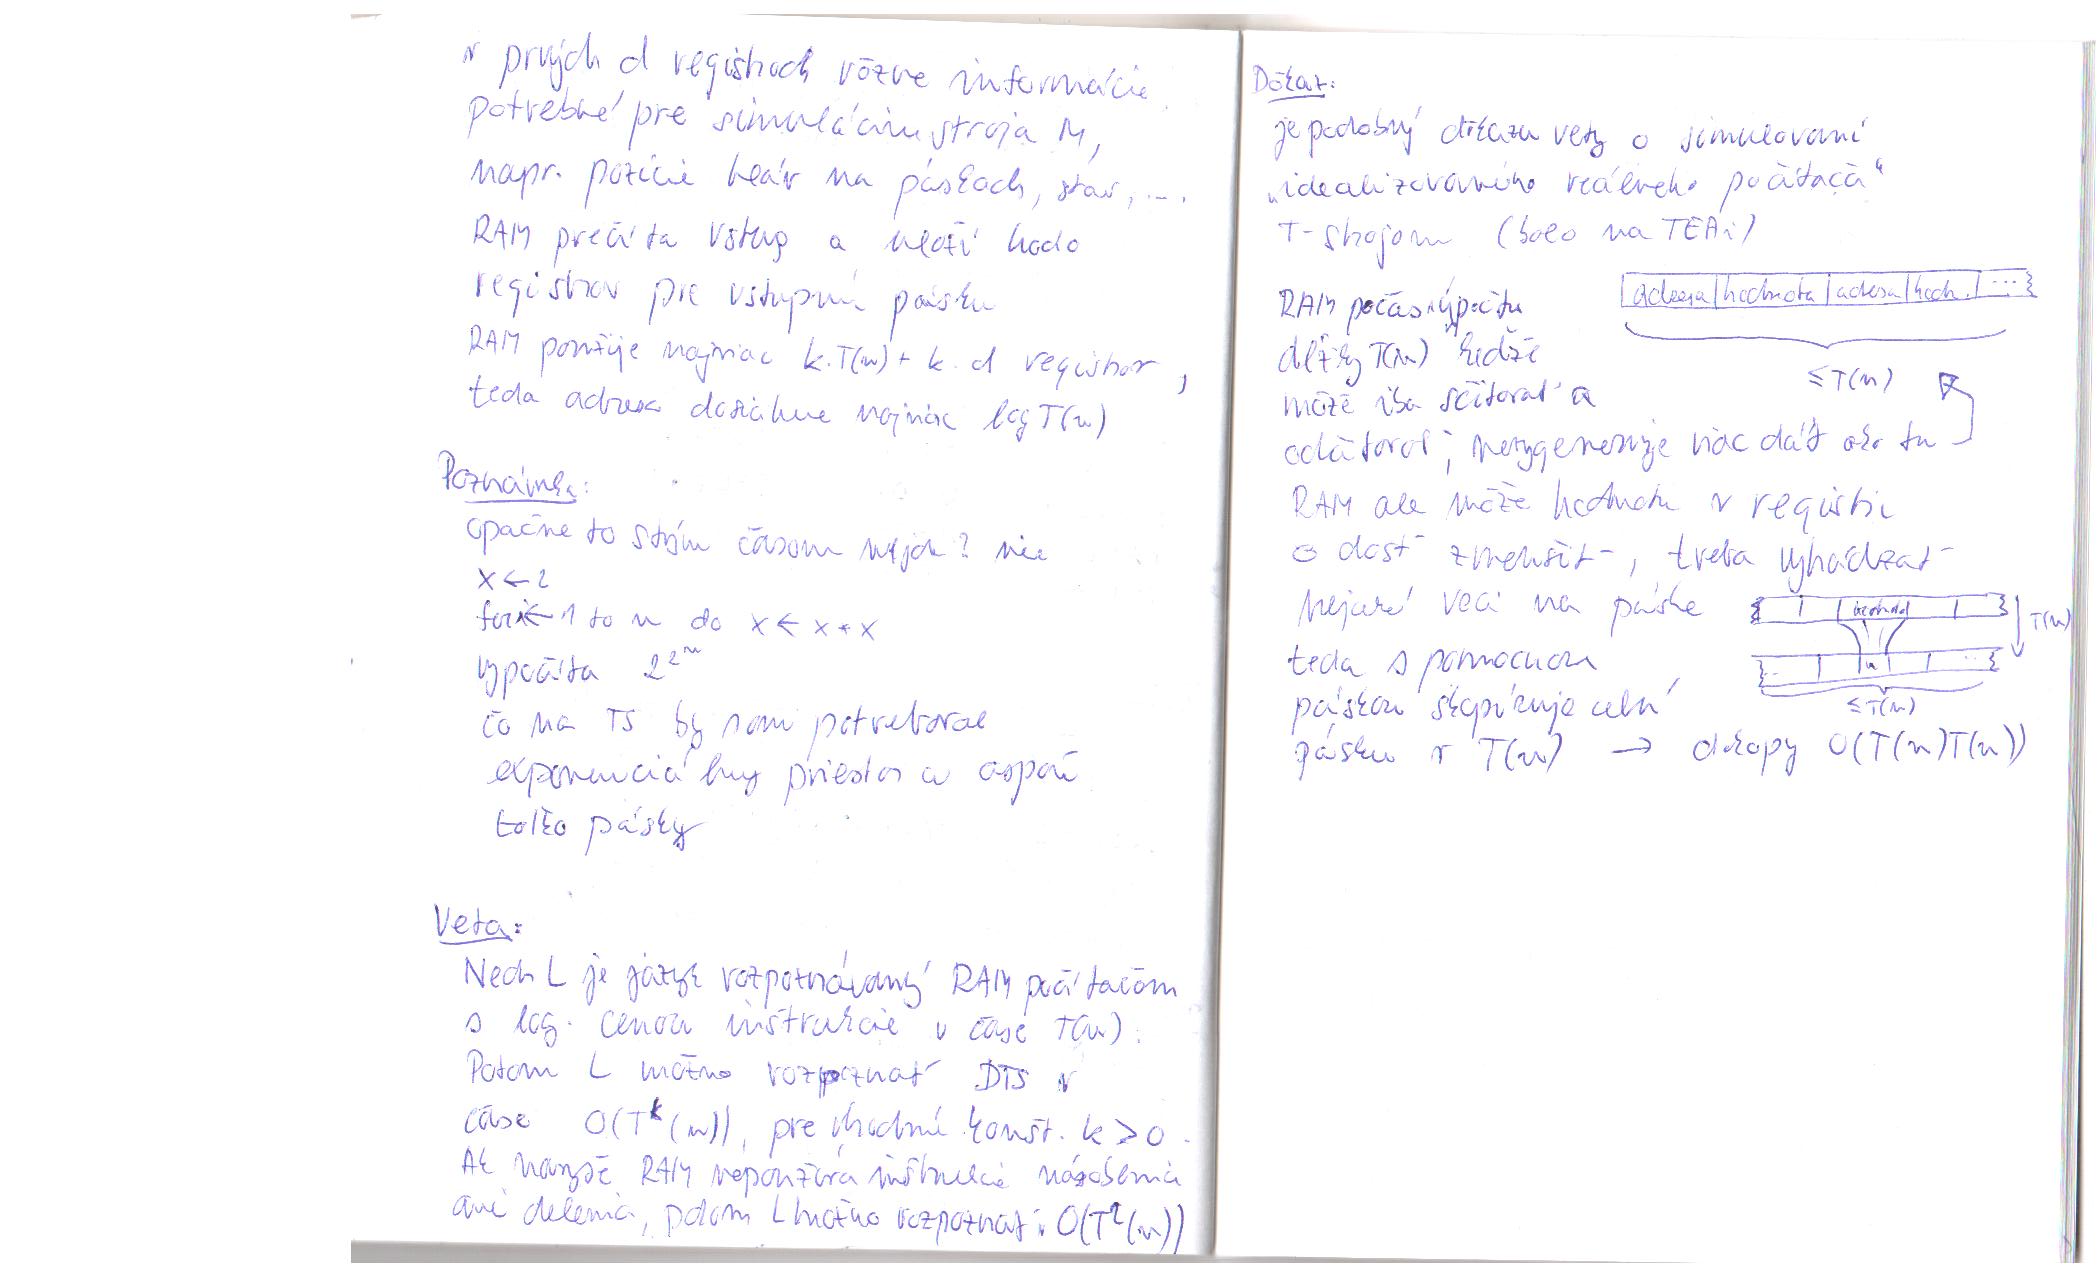 v prvých d registroch rôzne informácie
potrebné pre simuláciu stroja M,
napr. pozície hláv na páskach, stav, ...
RAM prečíta vstup a uloží ho do
registrov pre vstupnú pásku
RAM použije najviac k.T(n) + k.d registrov,
teda adresa dosiahne najviac log T(n)
Poznámka:
opačne to s tým časom nejde? nie
x ← 2
for i ← 1 to n do x ← x * x
vypočíta 2^2^n
čo na TS by som potreboval
exponenciálny priestor a aspoň
toľko pásky
Veta:
Nech L je jazyk rozpoznávaný RAM počítačom
s log. cenou inštrukcie v čase T(n).
Potom L možno rozpoznať DTS v
čase O(T^k(n)), pre vhodnú konšt. k > 0.
Ak navyše RAM nepoužíva inštrukcie násobenia
ani delenia, potom L možno rozpoznať v O(T^2(n))
Dôkaz:
je podobný dôkazu vety o simulovaní
„idealizovaného reálneho počítača“
T-strojom (bolo na TEAi)
RAM počas výpočtu
dĺžky T(n) keďže
môže iba sčítovať a
odčítovať, nevygeneruje viac dát ako tu
adresa | hodnota | adresa | hodn. | ...
≤ T(n)
RAM ale môže hodnotu v registri
o dosť zmenšiť, treba vyhádzať
nejaké veci na páske
teda s pomocnou
páskou skopíruje celú
pásku v T(n) → dokopy O(T(n)T(n))
T(n)
≤ T(n)